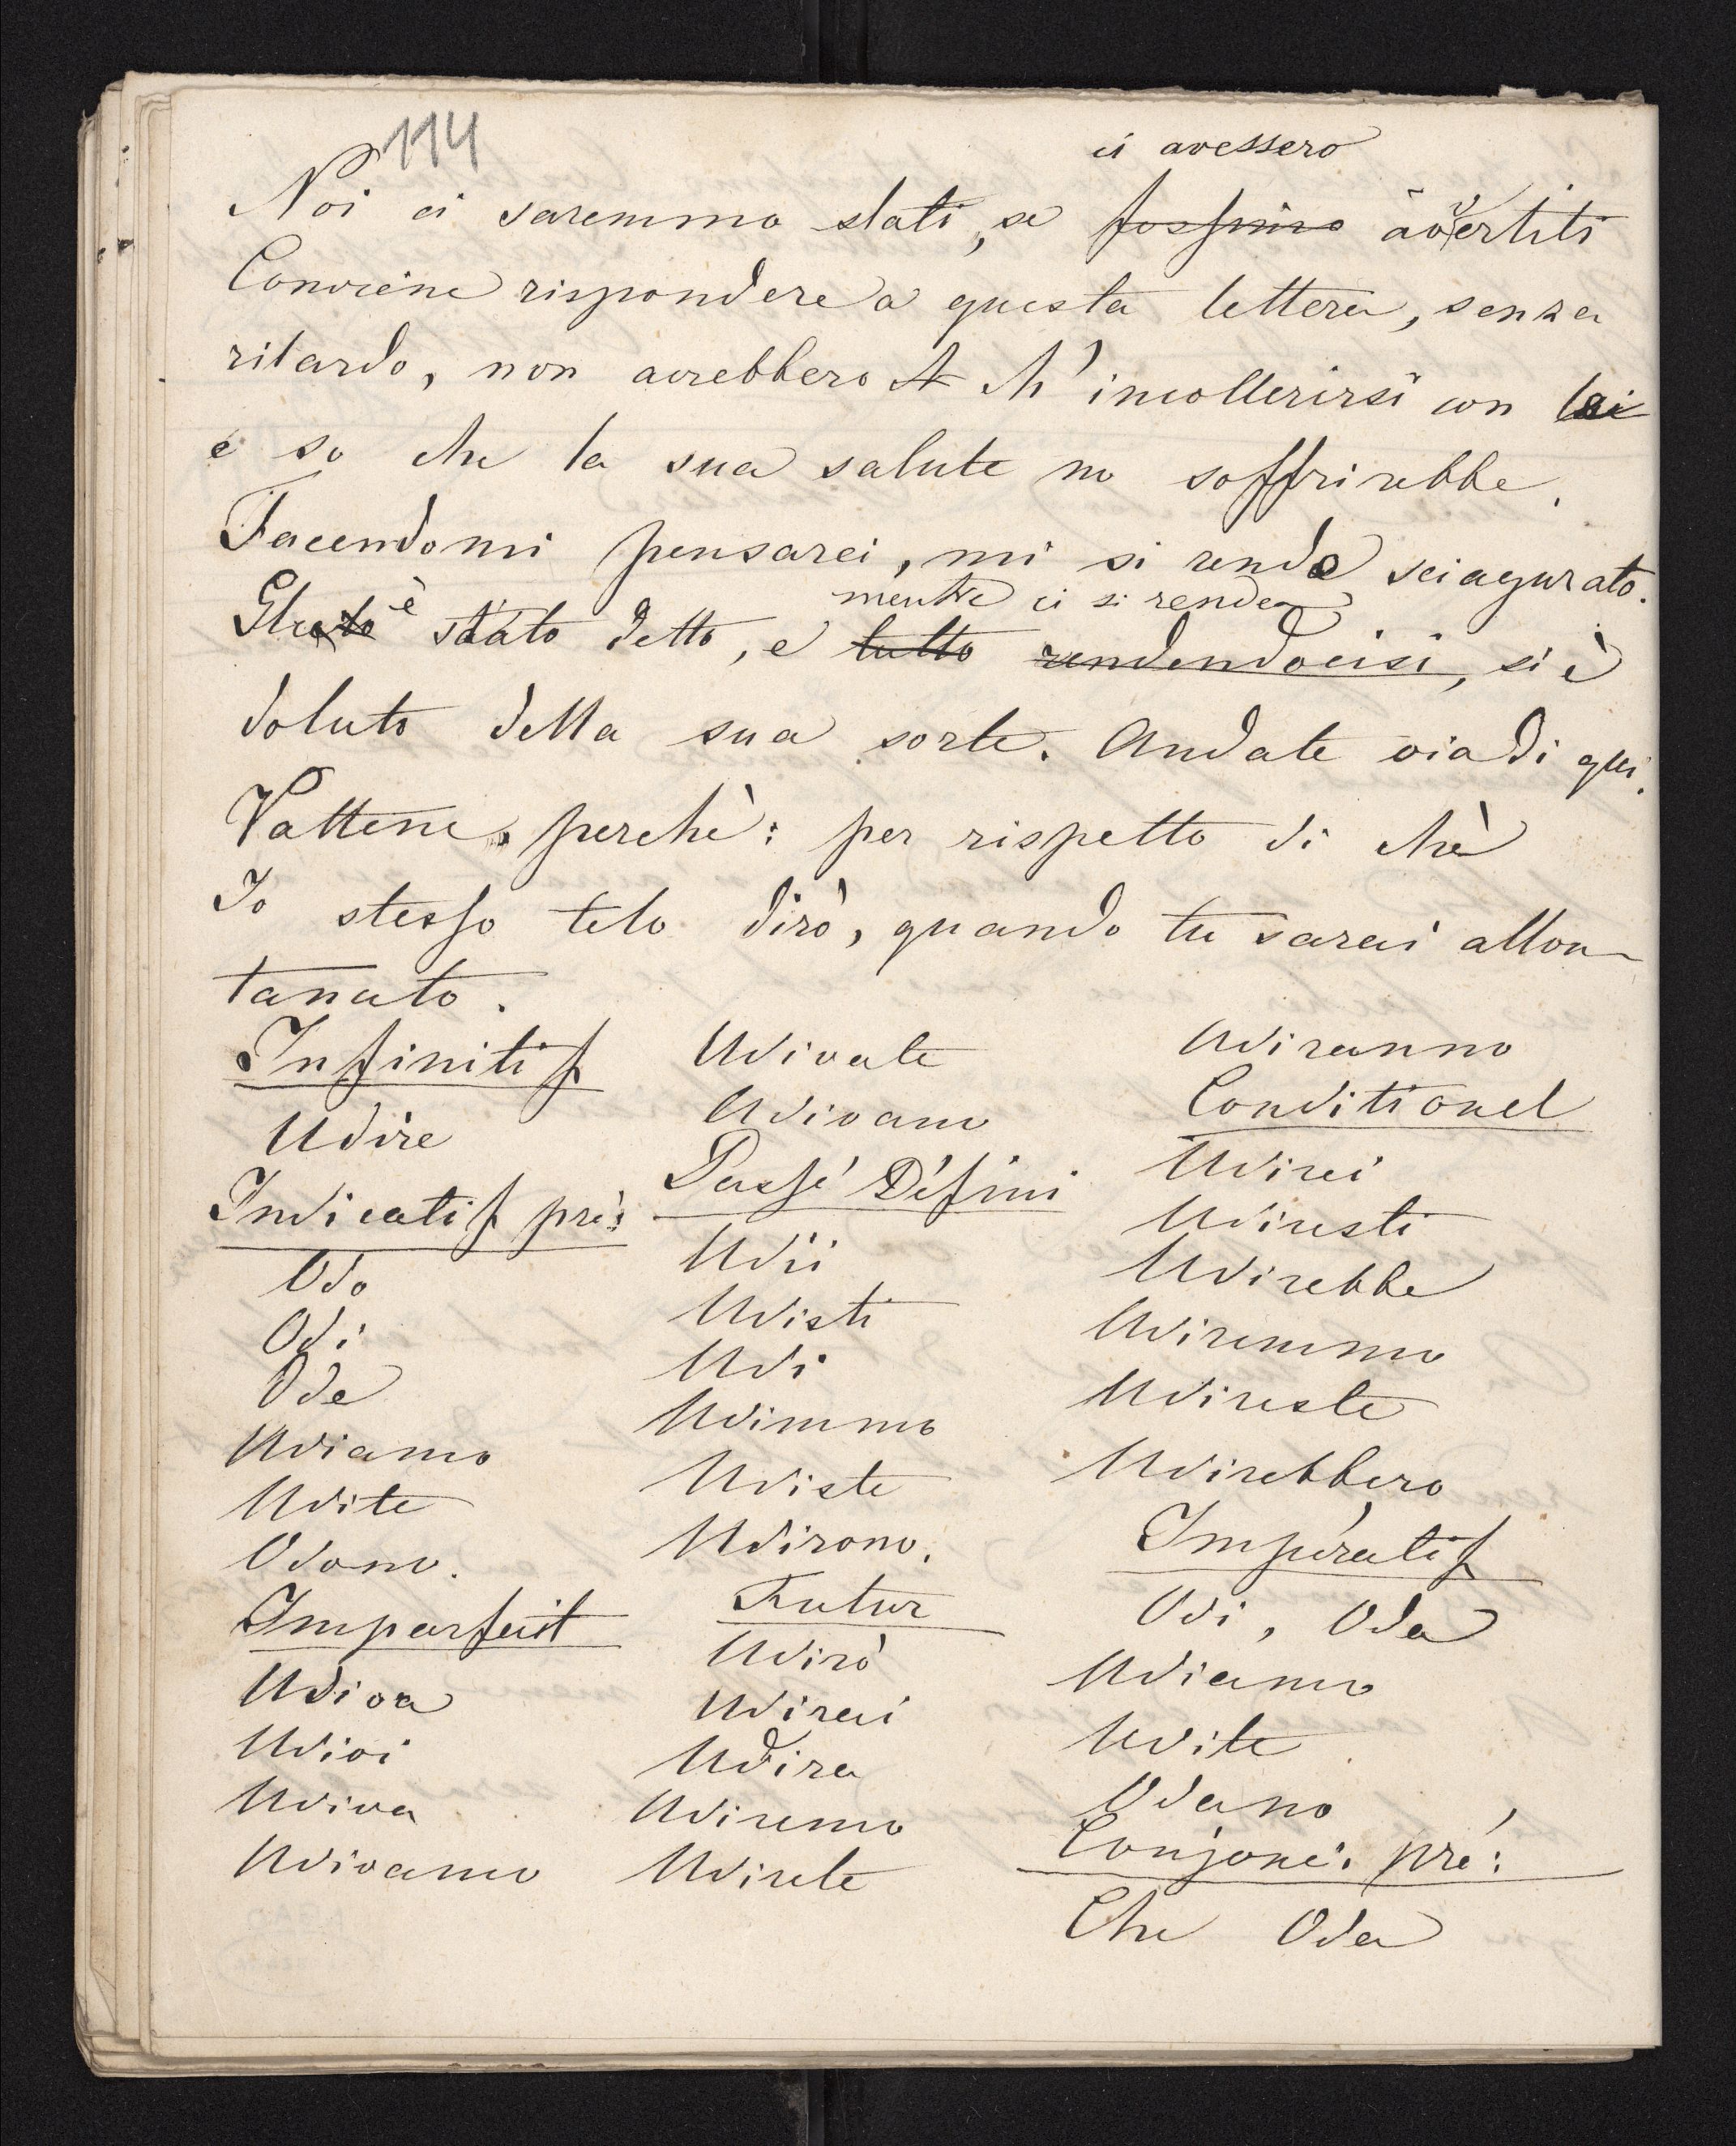 114
ci avessero
Noi ci saremmo stati, se fossimo avvertiti
Conviene rispondere a questa lettera, senza
ritardo, non avrebbero ch' incollerirsi con lei
e so che la sua salute no soffrirebbe.
Facendomi pensarci, mi si rende sciagurato.
mentre ci si rende
è stato detto, e tutto rendendocisi, si è
doluto della sua sorte. Andate via di qui.
Vattene, perchè: per rispetto di chè
Io stesso telo dirò, quando tu sarai allon-
tanato.
Infinitif
Udire
Indicatif pré:
Odo
Odi
Ode
Udiamo
Udite
Odono.
Imparfait
Udiva
Udivi
Udiva
Udivamo
Udivate
Udivano
Passé Défini
Udii
Udisti
Udi
Udimmo
Udiste
Udirono.
Futur
Udirò
Udirai
Udira
Udiremo
Udirete
Udiranno
Conditionel
Udirei
Udiresti
Udirebbe
Udiremmo
Udireste
Udirebbero
Impératif
Odi, Oda
Udiamo
Udite
Odano
Conjonc. pré:
Che Oda